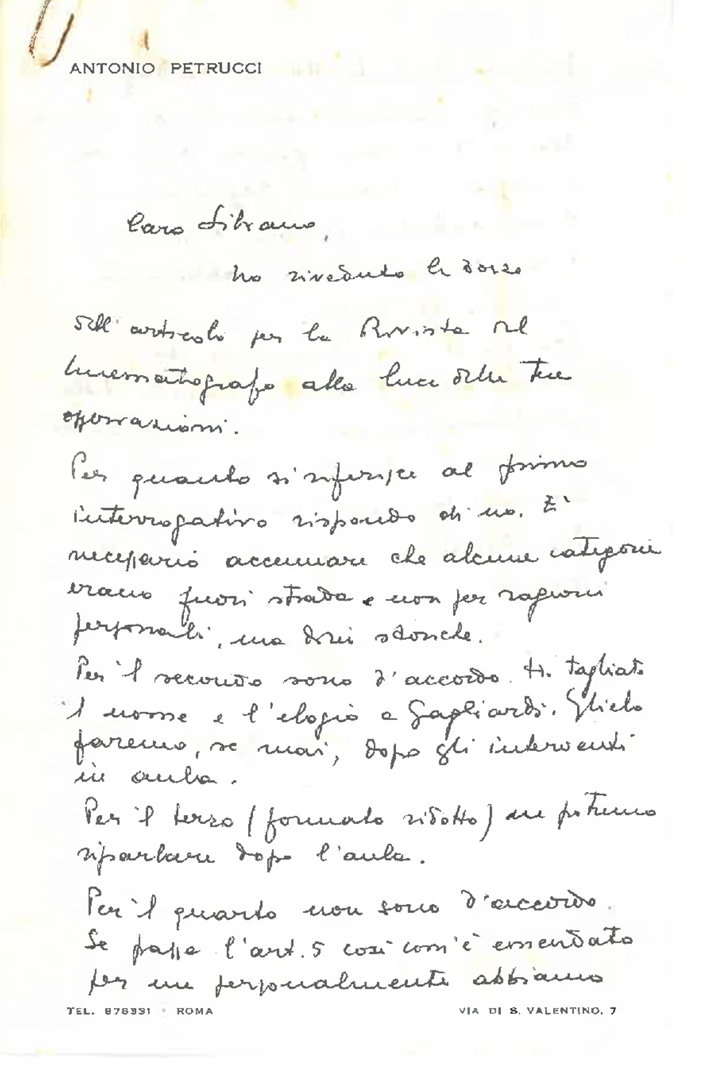 ANTONIO PETRUCCI
Caro Silvano,
ho riveduto le bozze
dell'articolo per la Rivista del
Cinematografo alla luce delle Tue
osservazioni.
Per quanto si riferisce al primo
interrogativo rispondo di no. È
necessario accennare che alcune categorie
erano fuori strada e non per ragioni
personali, ma storiche.
Per il secondo sono d'accordo. Ho tagliato
il nome e l'elogio a Gagliardi. Glielo
faremo, se mai, dopo gli interventi
in aula.
Per il terzo (formato ridotto) ne potremo
riparlare dopo l'aula.
Per il quarto non sono d'accordo.
Se passa l'art. 5 così com'è emendato
per me personalmente abbiamo
TEL. 878391 - ROMA
VIA DI S. VALENTINO, 7